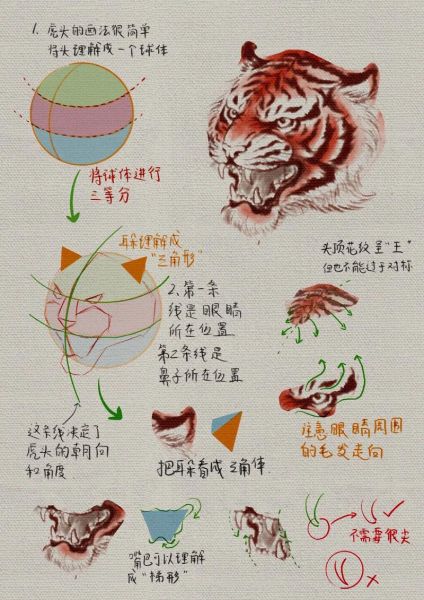 1. 虎头的画法很简单
将头理解成一个球体
将球体进行
三等分
耳朵理解成
"三角形"
头顶花纹呈"王"
但也不能过于对称
2. 第一条
线是眼睛
所在位置
第2条线是
鼻子所在位置
这条线决定了
虎头的朝向
和角度
把耳朵看成三角体.
注意眼睛周围
的毛发走向
嘴巴可以理解
成"梯形"
不需要很尖